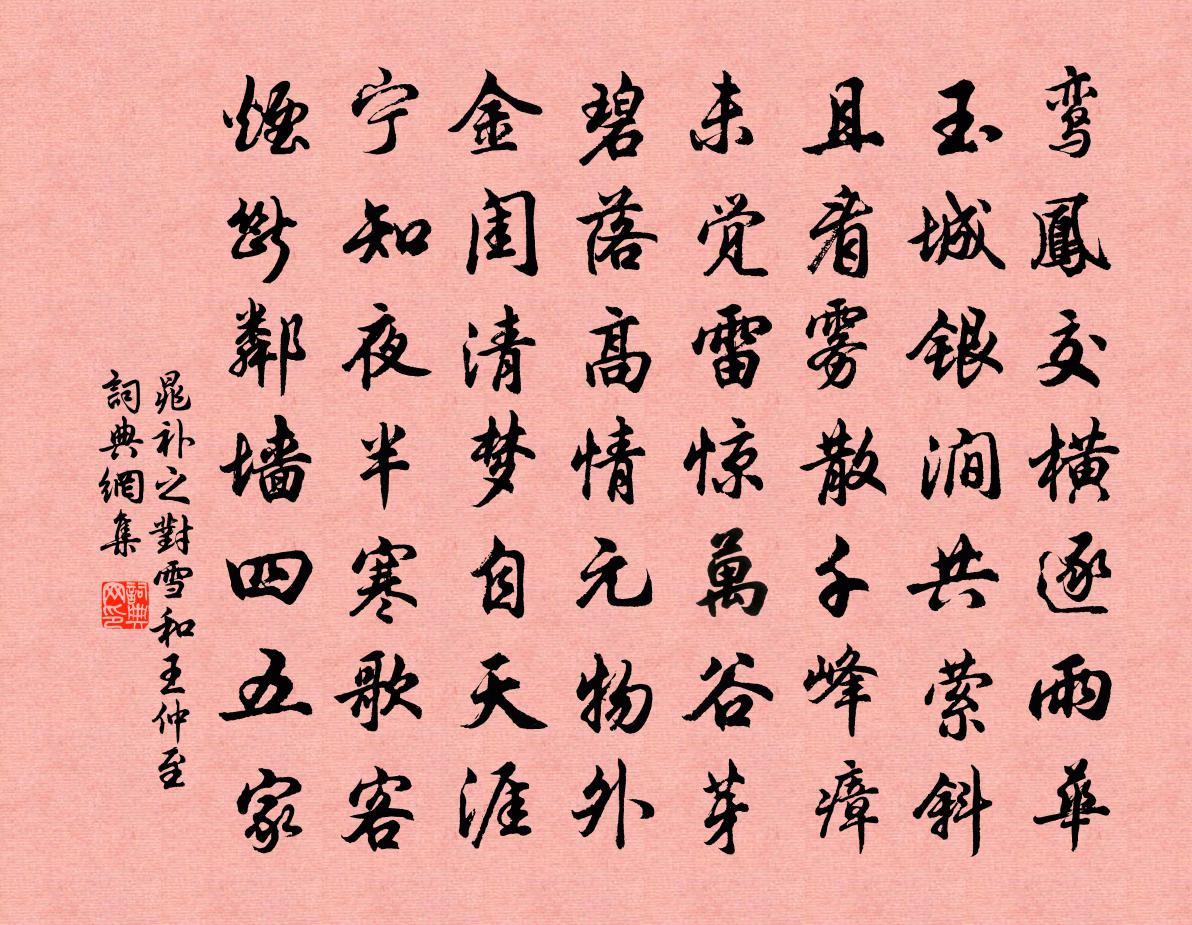 鸾鳳交横逐雨華
玉城银涧共萦斜
且看雾散千峰瘴
未觉雷惊萬谷芽
碧落高情元物外
金闺清梦自天涯
宁知夜半寒歌客
煙斷鄰墙四五家
晁补之對雪和王仲至
詞典網集
詞典网印